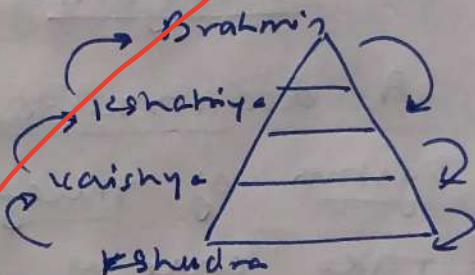 Brahmin
Kshatriya
Vaishya
Kshudra